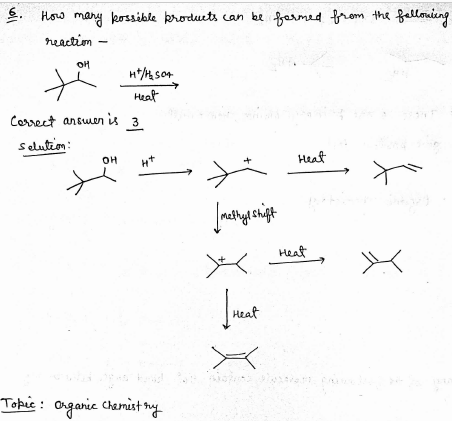 6. How many possible products can be formed from the following
reaction —
OH
H+/H2SO4
Heat
Correct answer is 3
Solution:
OH
H+
+
Heat
Methyl Shift
+
Heat
Heat
Topic: Organic Chemistry